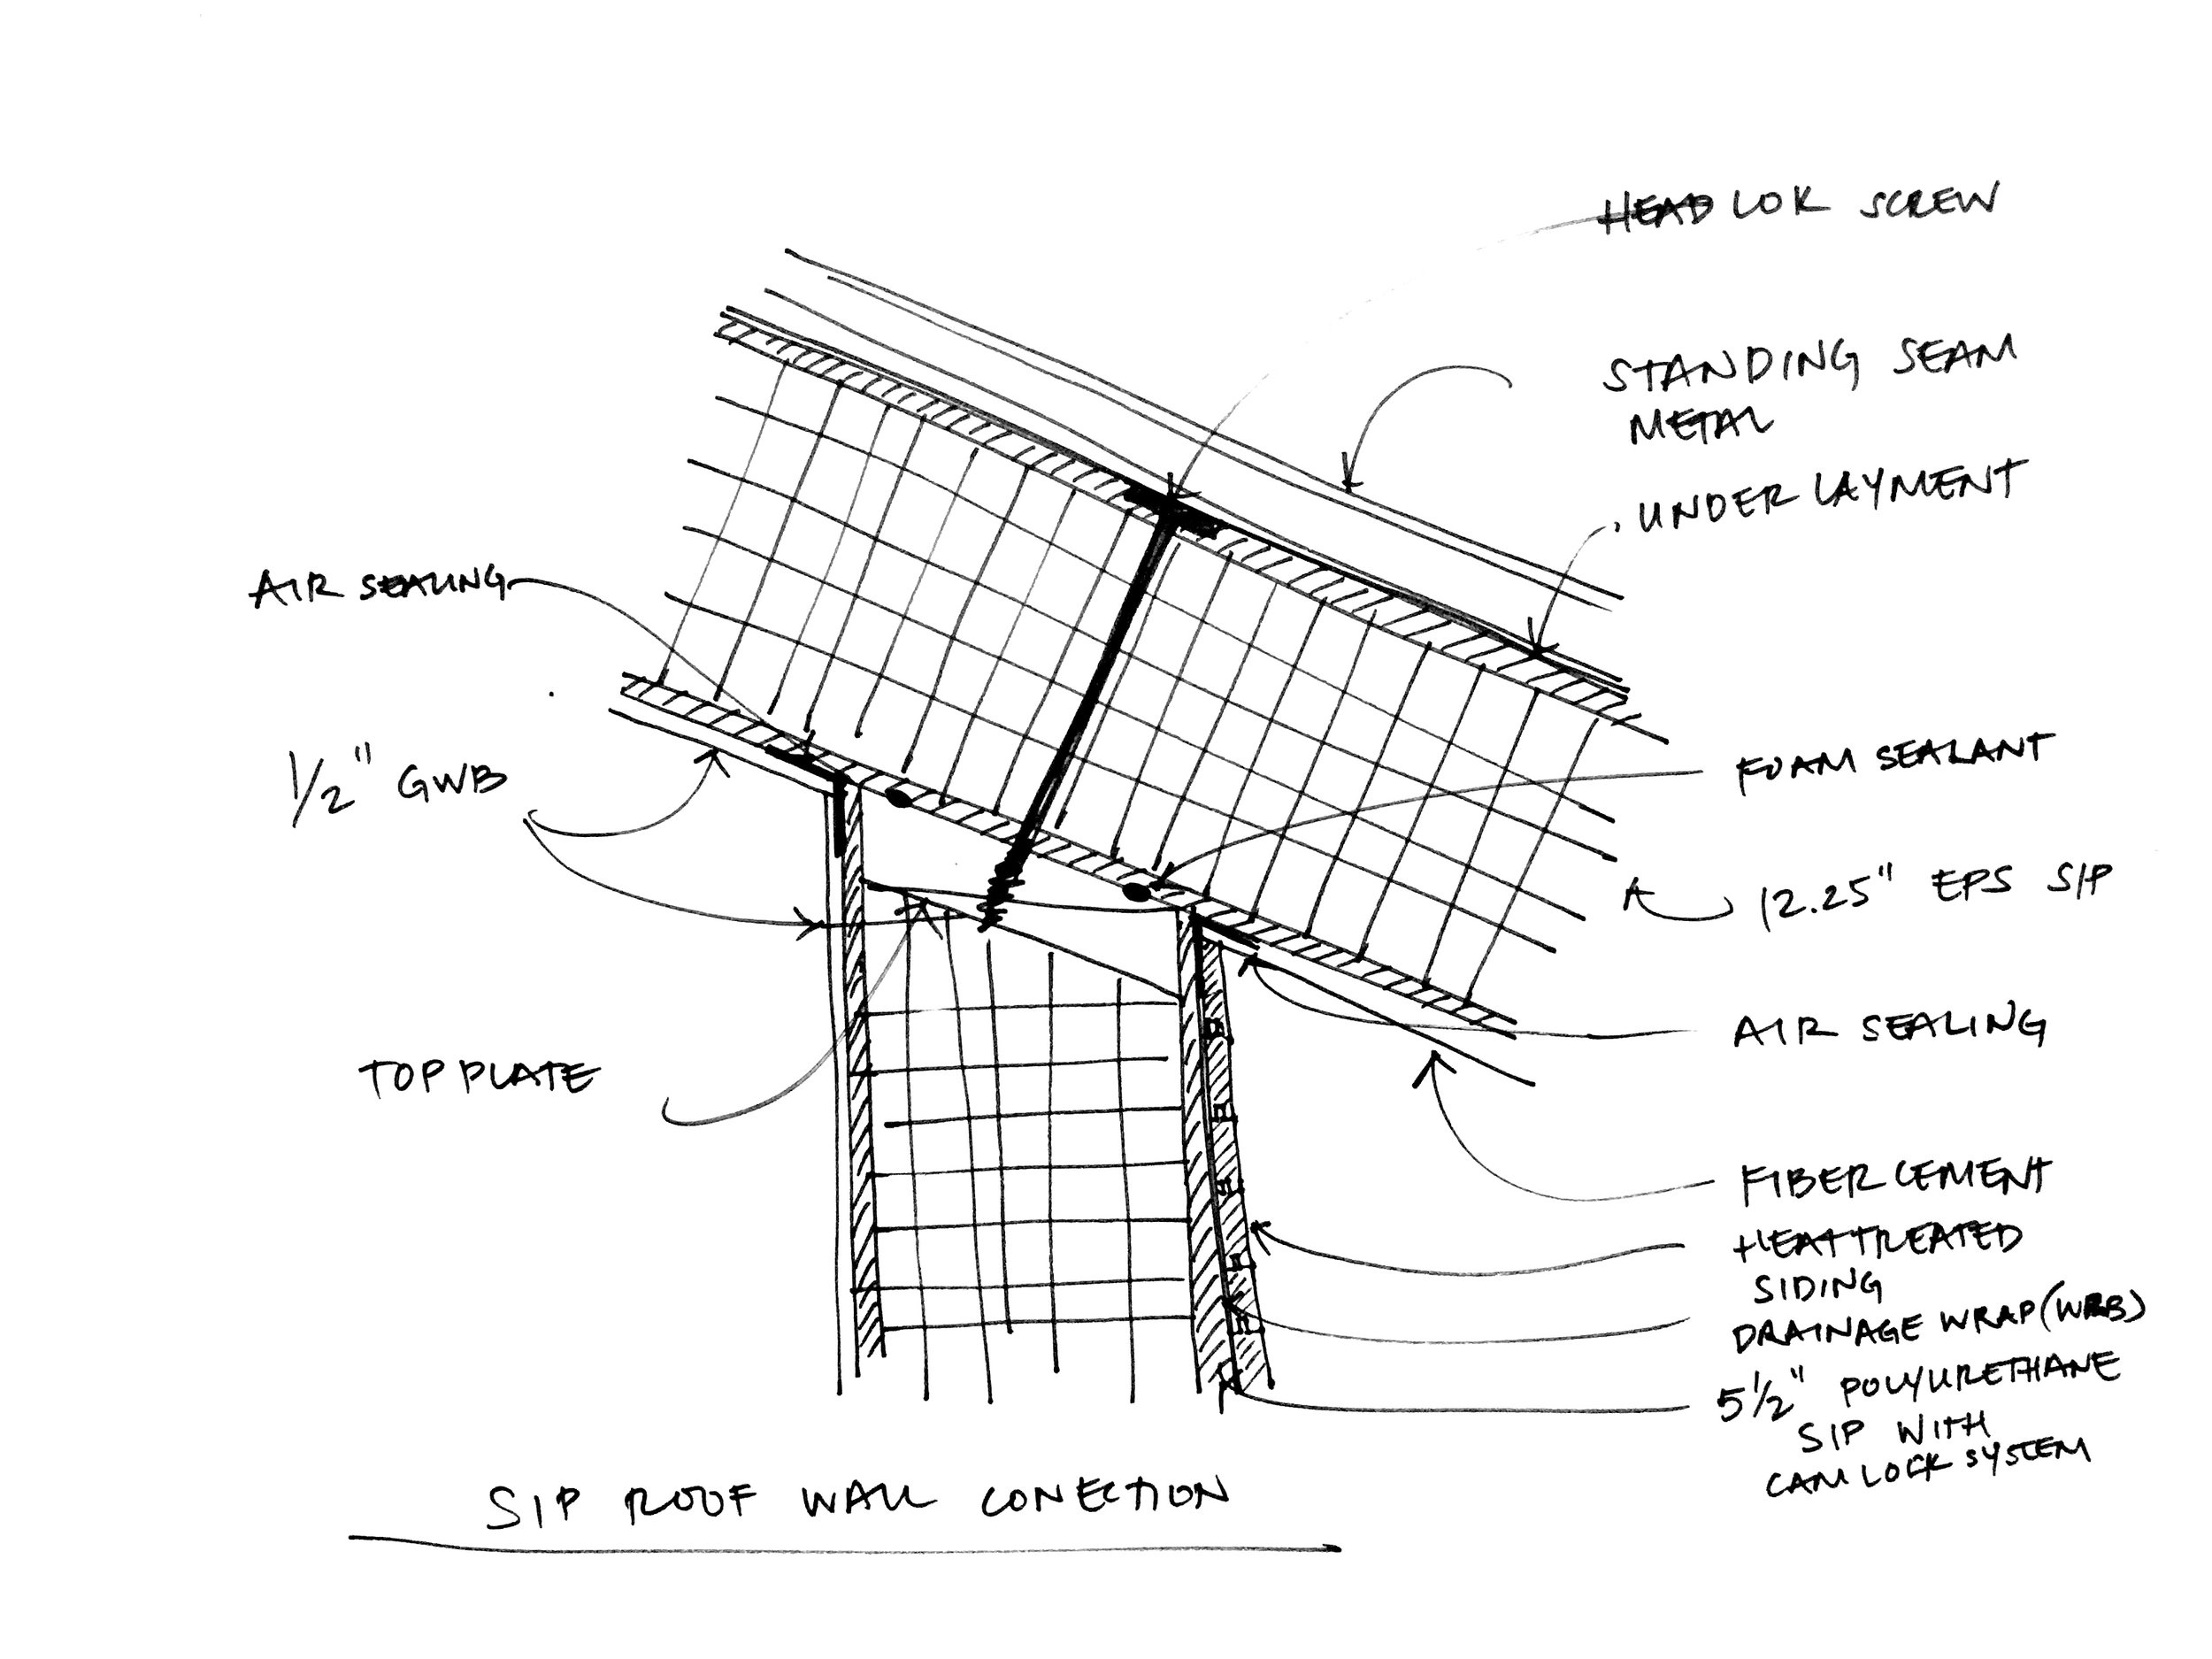 HEADLOK SCREW
STANDING SEAM
METAL
UNDERLAYMENT
AIR SEALING
1/2" GWB
FOAM SEALANT
12.25" EPS SIP
AIR SEALING
TOP PLATE
FIBER CEMENT
HEAT TREATED
SIDING
DRAINAGE WRAP (WRB)
5 1/2" POLYURETHANE
SIP WITH
CAM LOCK SYSTEM
SIP ROOF WALL CONECTION